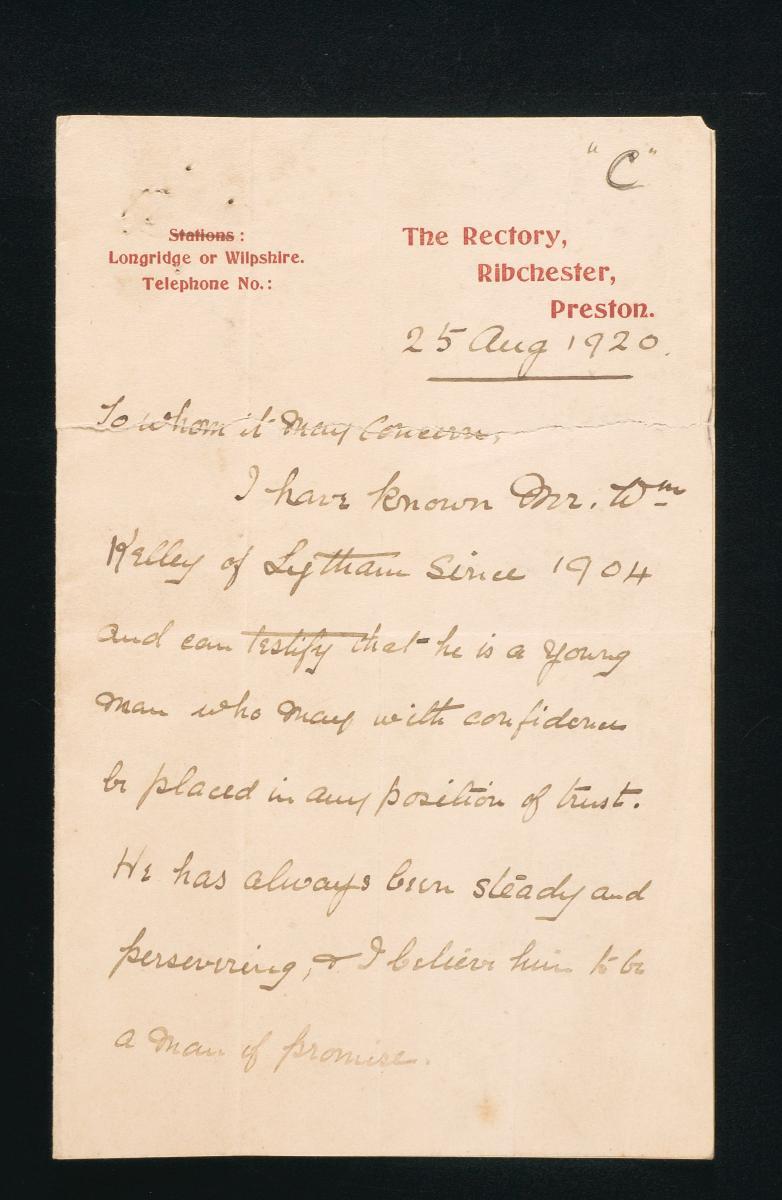 "C"
Stations:
Longridge or Wilpshire.
Telephone No.:
The Rectory,
Ribchester,
Preston.
25 Aug 1920.
To whom it may concern,
I have known Mr. Wm
Kelley of Lytham since 1904
and can testify that he is a young
man who may with confidence
be placed in any position of trust.
He has always been steady and
persevering, & I believe him to be
a man of promise.